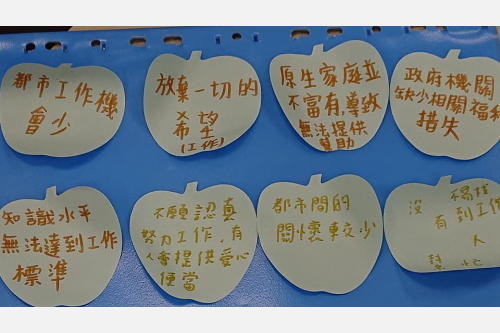 都市工作機
會少
放棄一切的
希望
(工作)
原生家庭並
不富有,導致
無法提供
幫助
政府機關
缺少相關福利
措失
知識水平
無法達到工作
標準
不願認真
努力工作,有
人會提供愛心
便當
都市間的
關懷較少
沒有
到工作
人
幫忙